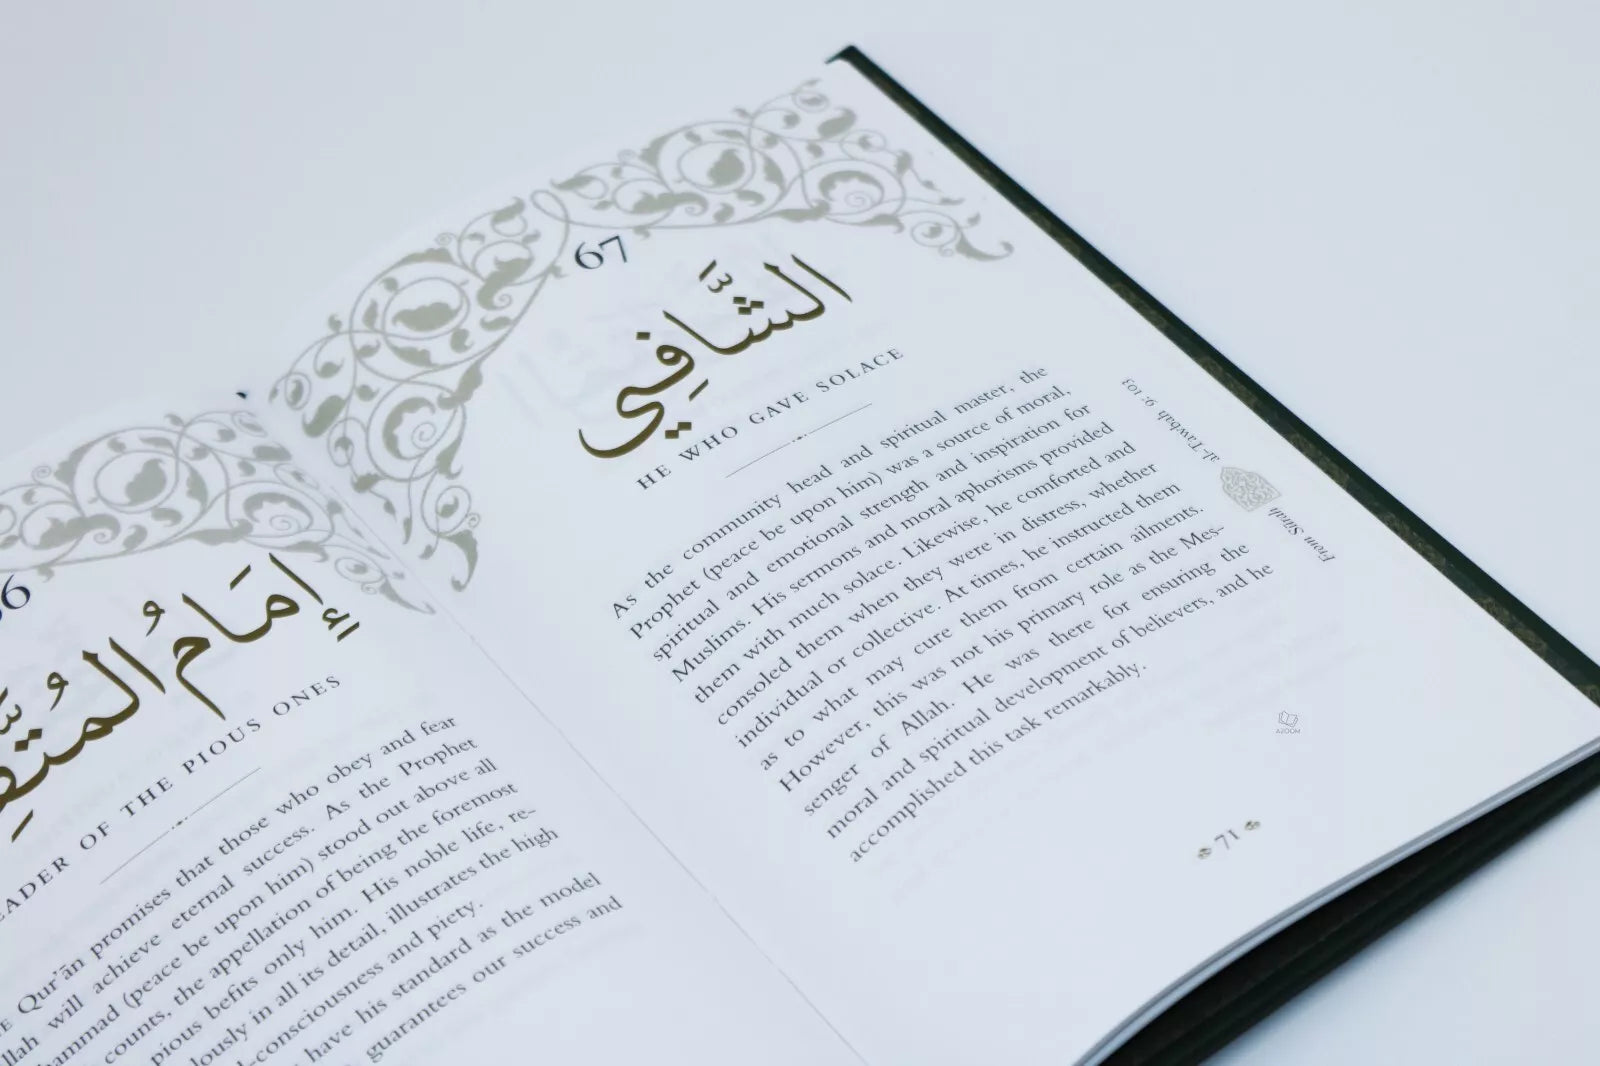 إِمَامُ الْمُتَّقِ
LEADER OF THE PIOUS ONES
Qur'ān promises that those who obey and fear
will achieve eternal success. As the Prophet
(peace be upon him) stood out above all
counts, the appellation of being the foremost
pious befits only him. His noble life, re-
in all its detail, illustrates the high
-consciousness and piety.
have his standard as the model
guarantees our success and
67
الشَّافِي
HE WHO GAVE SOLACE
As the community head and spiritual master, the
Prophet (peace be upon him) was a source of moral,
spiritual and emotional strength and inspiration for
Muslims. His sermons and moral aphorisms provided
them with much solace. Likewise, he comforted and
consoled them when they were in distress, whether
individual or collective. At times, he instructed them
as to what may cure them from certain ailments.
However, this was not his primary role as the Mes-
senger of Allah. He was there for ensuring the
moral and spiritual development of believers, and he
accomplished this task remarkably.
From Sūrah
al-Tawbah 9: 103
AZOOM
71